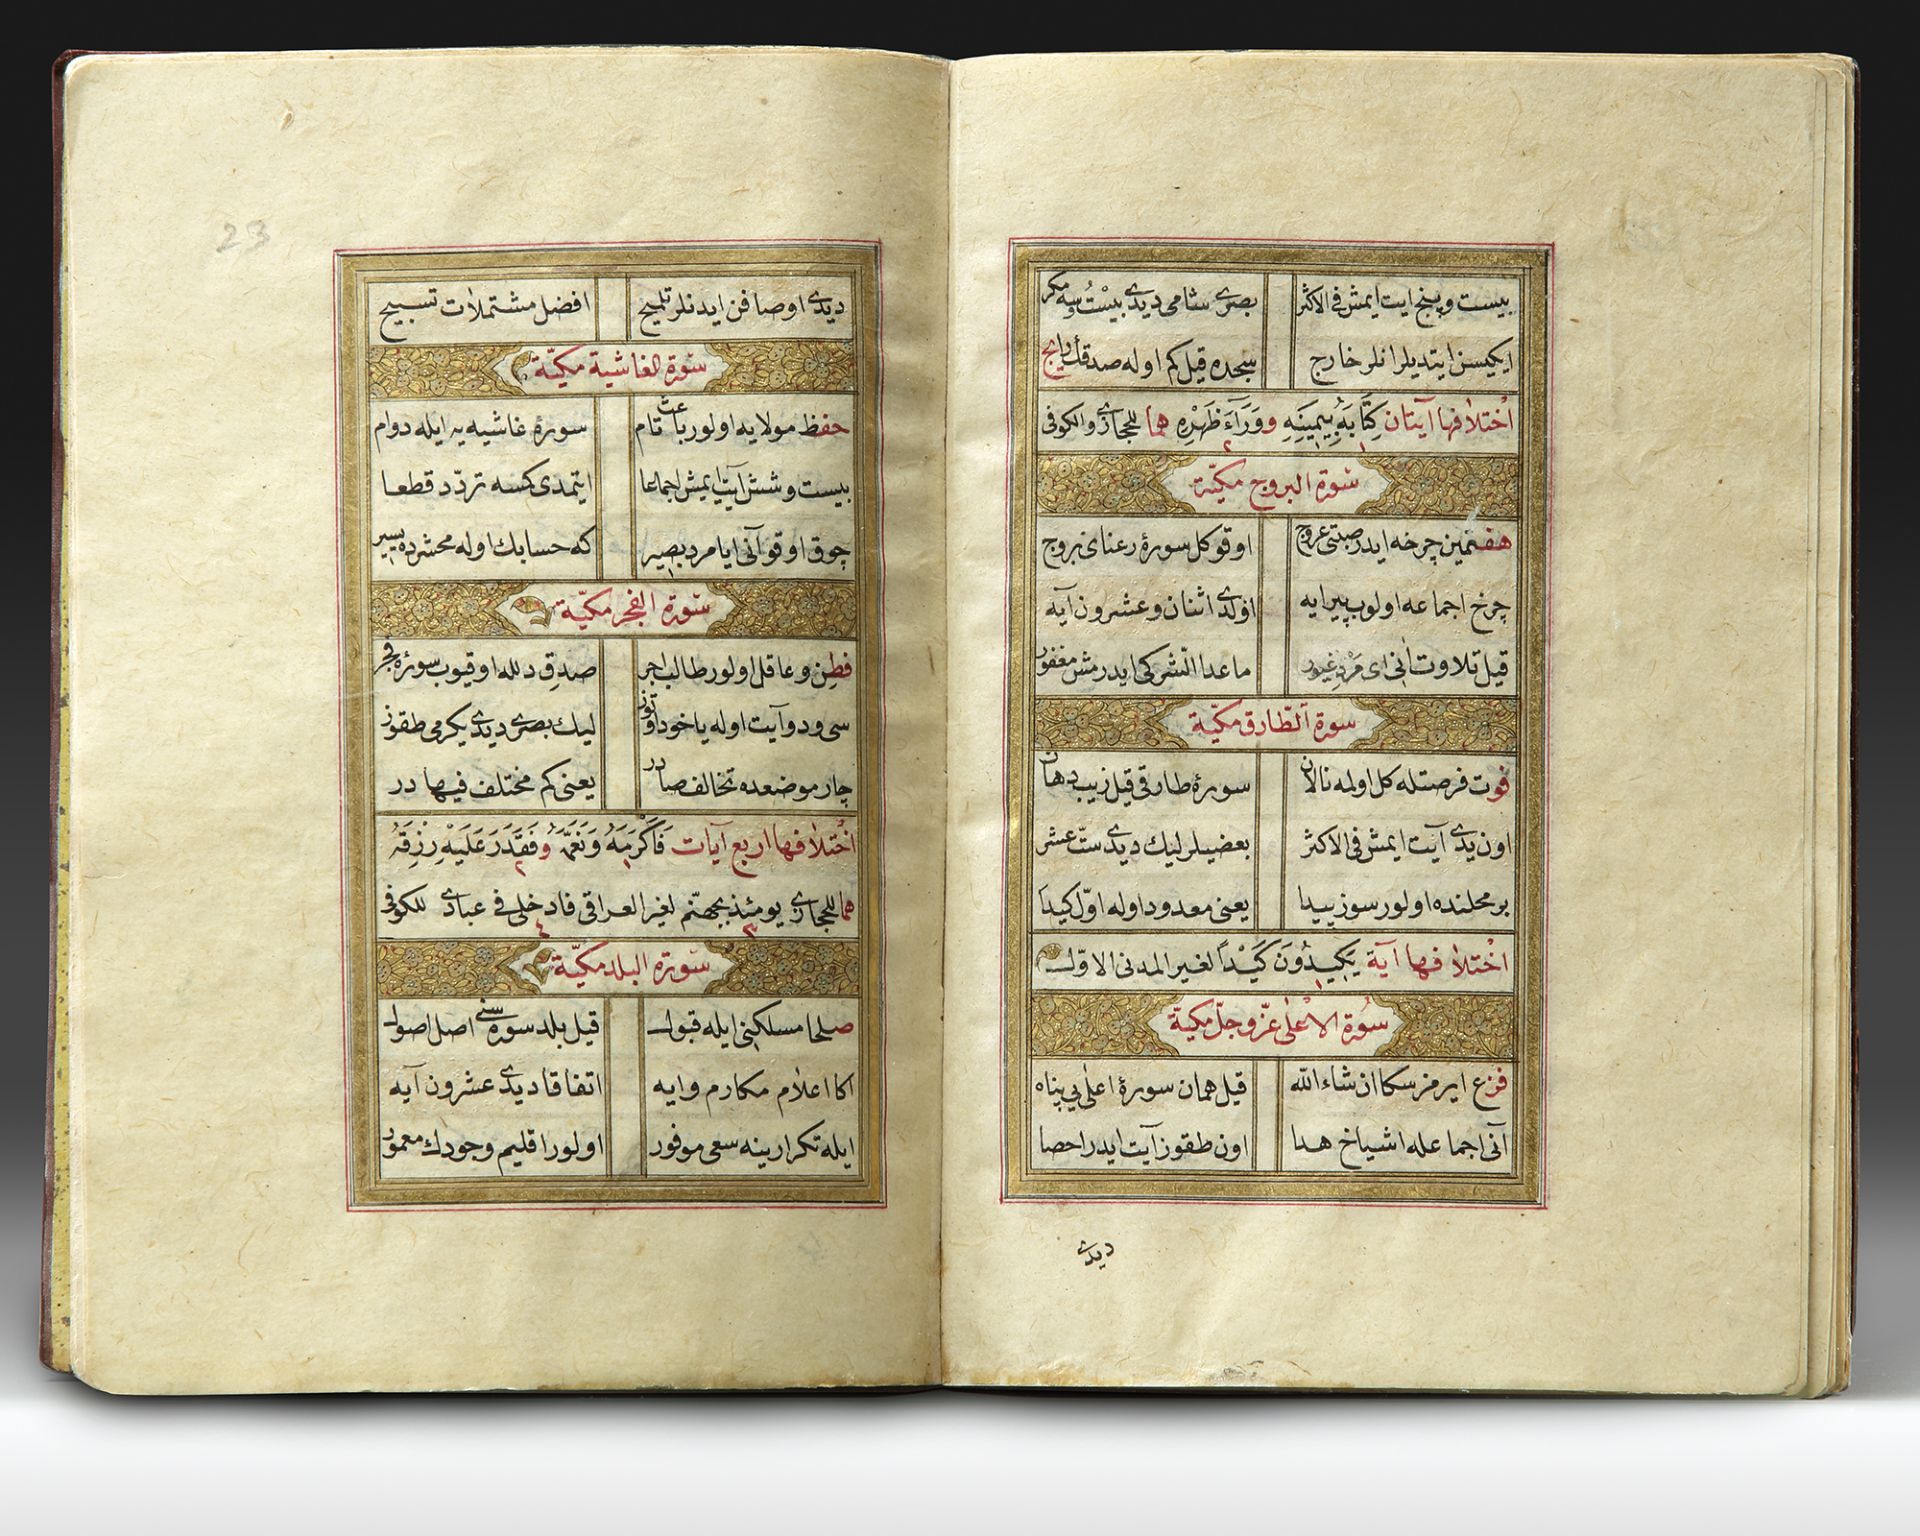 بيست و پنج ايت ايمش فى الاكثر بصرى شامى ديدى بيست وسه مكر
ايكيسن ايتديلر انلر خارج سجده قيل كم اوله صدقك رايج
اخْتلاٰفها آيتان كِتَابَهُ بِيَمِينِهِ و وَرَآءَ ظَهْرِهِ هما للحجازى والكوفى
سورة البروج مكيّة
هفتمين چرخه ايدر صيتى عروج اوقو كل سورۀ رعناى بروج
چرخ اجماعه اولوب پيرايه اولدى اثنان و عشرون آيه
قيل تلاوت آنى اى مَرْدِ غيور ماعدا الشركى ايدرمش مغفور
سورة الطّارق مكيّة
فوت فرصتله كل اولمه نالان سورۀ طارقى قيل زيب دهان
اون يدى آيت ايمش فى الاكثر بعضيلر ليك ديدى ستّ عشر
بر محلنده اولور سوز پيدا يعنى معدود اوله اوّل كيدا
اخْتلاٰ فها آية يَكِيدُونَ كَيْداً لغير المدنى الاوّل
سُورة الاَعْلٰى عزّ و جلّ مكيّة
فزع ايرمز سكا ان شاء الله قيل همان سورۀ اعلى يى پناه
آنى اجما عله اشياخ هدا اون طقوز آيت ايدر احصا
ديدى
23
ديدى اوصافن ايدنلر تلميح افضل مشتملاٰت تسبيح
سورة الغاشية مكيّة
حفظ مولايه اولور باعث تام سورۀ غاشيه يه ايله دوام
بيست و شش آيت ايمش اجماعا ايتمدى كسه تردّد قطعا
چوق اوقو آنى ايا مرد بصير كه حسابك اوله محشرده يسير
سورة الفجر مكيّة
فطِن و عاقل اولور طالب اجر صدقِ دلله اوقيوب سورۀ فجر
سى و دو آيت اوله ياخود اوتوز ليك بصرى ديدى يكرمى طقوز
چار موضعده تخالف صادر يعنى كم مختلف فيها در
اخْتلاٰفها اربع آيات فَاَكْرَمَهُ وَنَعَّمَهُ و فَقَدَرَ عَلَيْهِ رِزْقَهُ
هما للحجازى يومئذ بجهنّم لغير العراقى فادخلى فى عبادى للكوفى
سورة البلد مكيّة
صلحا مسلكنى ايله قبول قيل بلد سوره سنى اصل اصول
اكا اعلاٰم مكارم وايه اتفاقا ديدى عشرون آيه
ايله تكرارينه سعى موفور اولور اقليم وجودك معمور